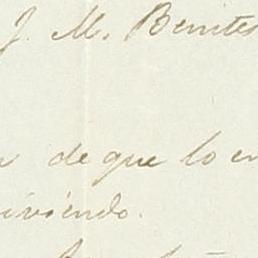 J. M. Benites
de que lo en
iviendo.